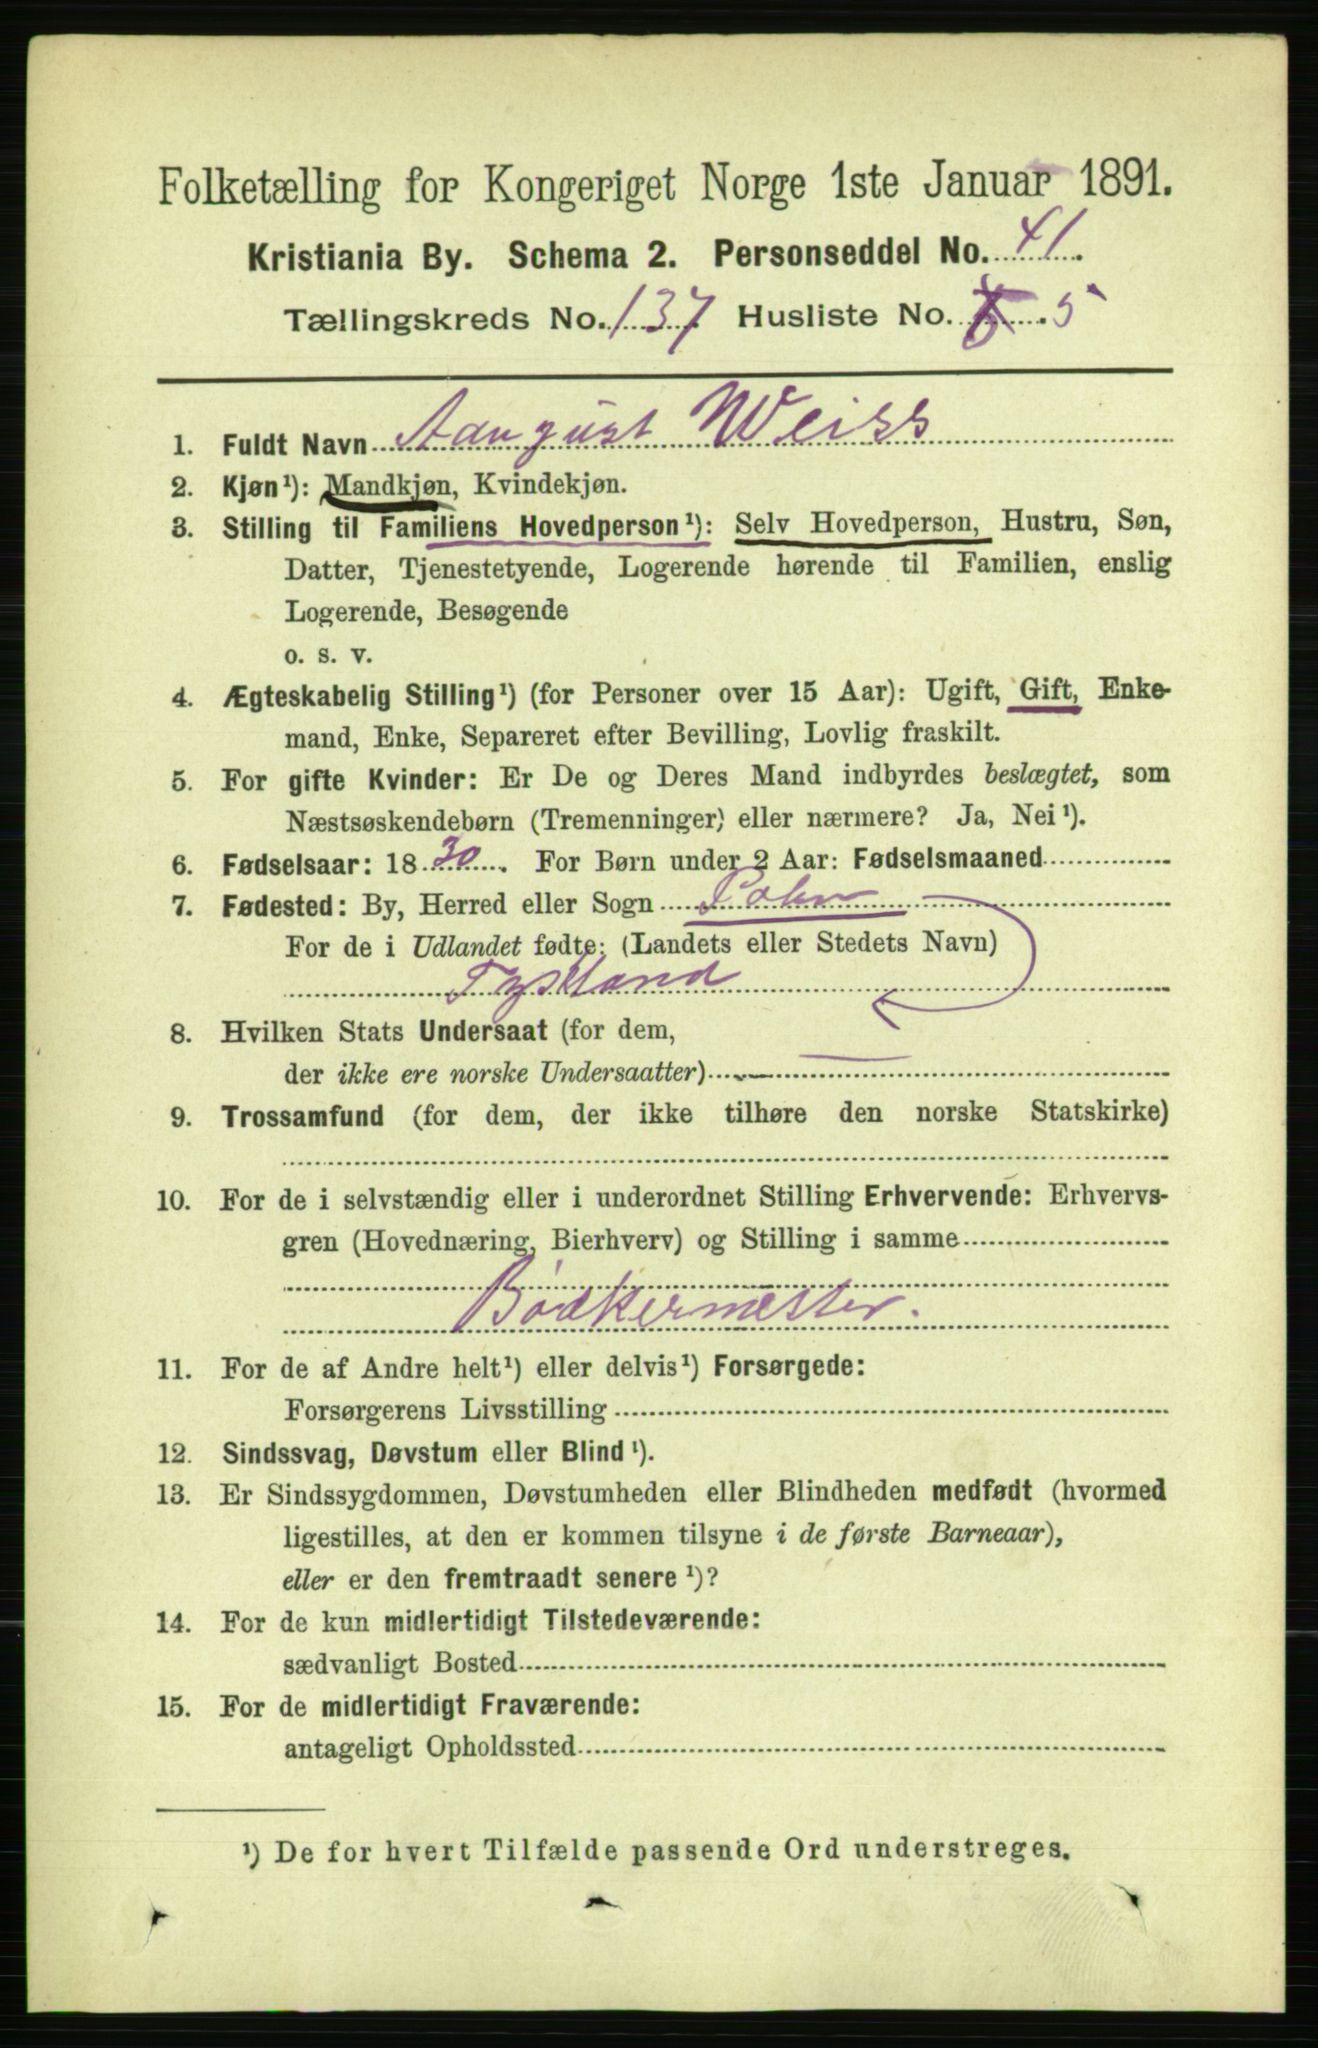 Folketælling for Kongeriget Norge 1ste Januar 1891.
Kristiania By. Schema 2. Personseddel No. 41.
Tællingskreds No. 137. Husliste No. 5
1. Fuldt Navn Aaugust Weiss
2. Kjøn¹): Mandkjøn, Kvindekjøn.
3. Stilling til Familiens Hovedperson¹): Selv Hovedperson, Hustru, Søn,
Datter, Tjenestetyende, Logerende hørende til Familien, enslig
Logerende, Besøgende
o. s. v.
4. Ægteskabelig Stilling¹) (for Personer over 15 Aar): Ugift, Gift, Enke-
mand, Enke, Separeret efter Bevilling, Lovlig fraskilt.
5. For gifte Kvinder: Er De og Deres Mand indbyrdes beslægtet, som
Næstsøskendebørn (Tremenninger) eller nærmere? Ja, Nei¹).
6. Fødselsaar: 1830. For Børn under 2 Aar: Fødselsmaaned
7. Fødested: By, Herred eller Sogn
For de i Udlandet fødte: (Landets eller Stedets Navn)
Tyskland
8. Hvilken Stats Undersaat (for dem,
der ikke ere norske Undersaatter)
9. Trossamfund (for dem, der ikke tilhøre den norske Statskirke)
10. For de i selvstændig eller i underordnet Stilling Erhvervende: Erhvervs-
gren (Hovednæring, Bierhverv) og Stilling i samme
Bødkermester.
11. For de af Andre helt¹) eller delvis¹) Forsørgede:
Forsørgerens Livsstilling
12. Sindssvag, Døvstum eller Blind¹).
13. Er Sindssygdommen, Døvstumheden eller Blindheden medfødt (hvormed
ligestilles, at den er kommen tilsyne i de første Barneaar),
eller er den fremtraadt senere¹)?
14. For de kun midlertidigt Tilstedeværende:
sædvanligt Bosted
15. For de midlertidigt Fraværende:
antageligt Opholdssted
¹) De for hvert Tilfælde passende Ord understreges.